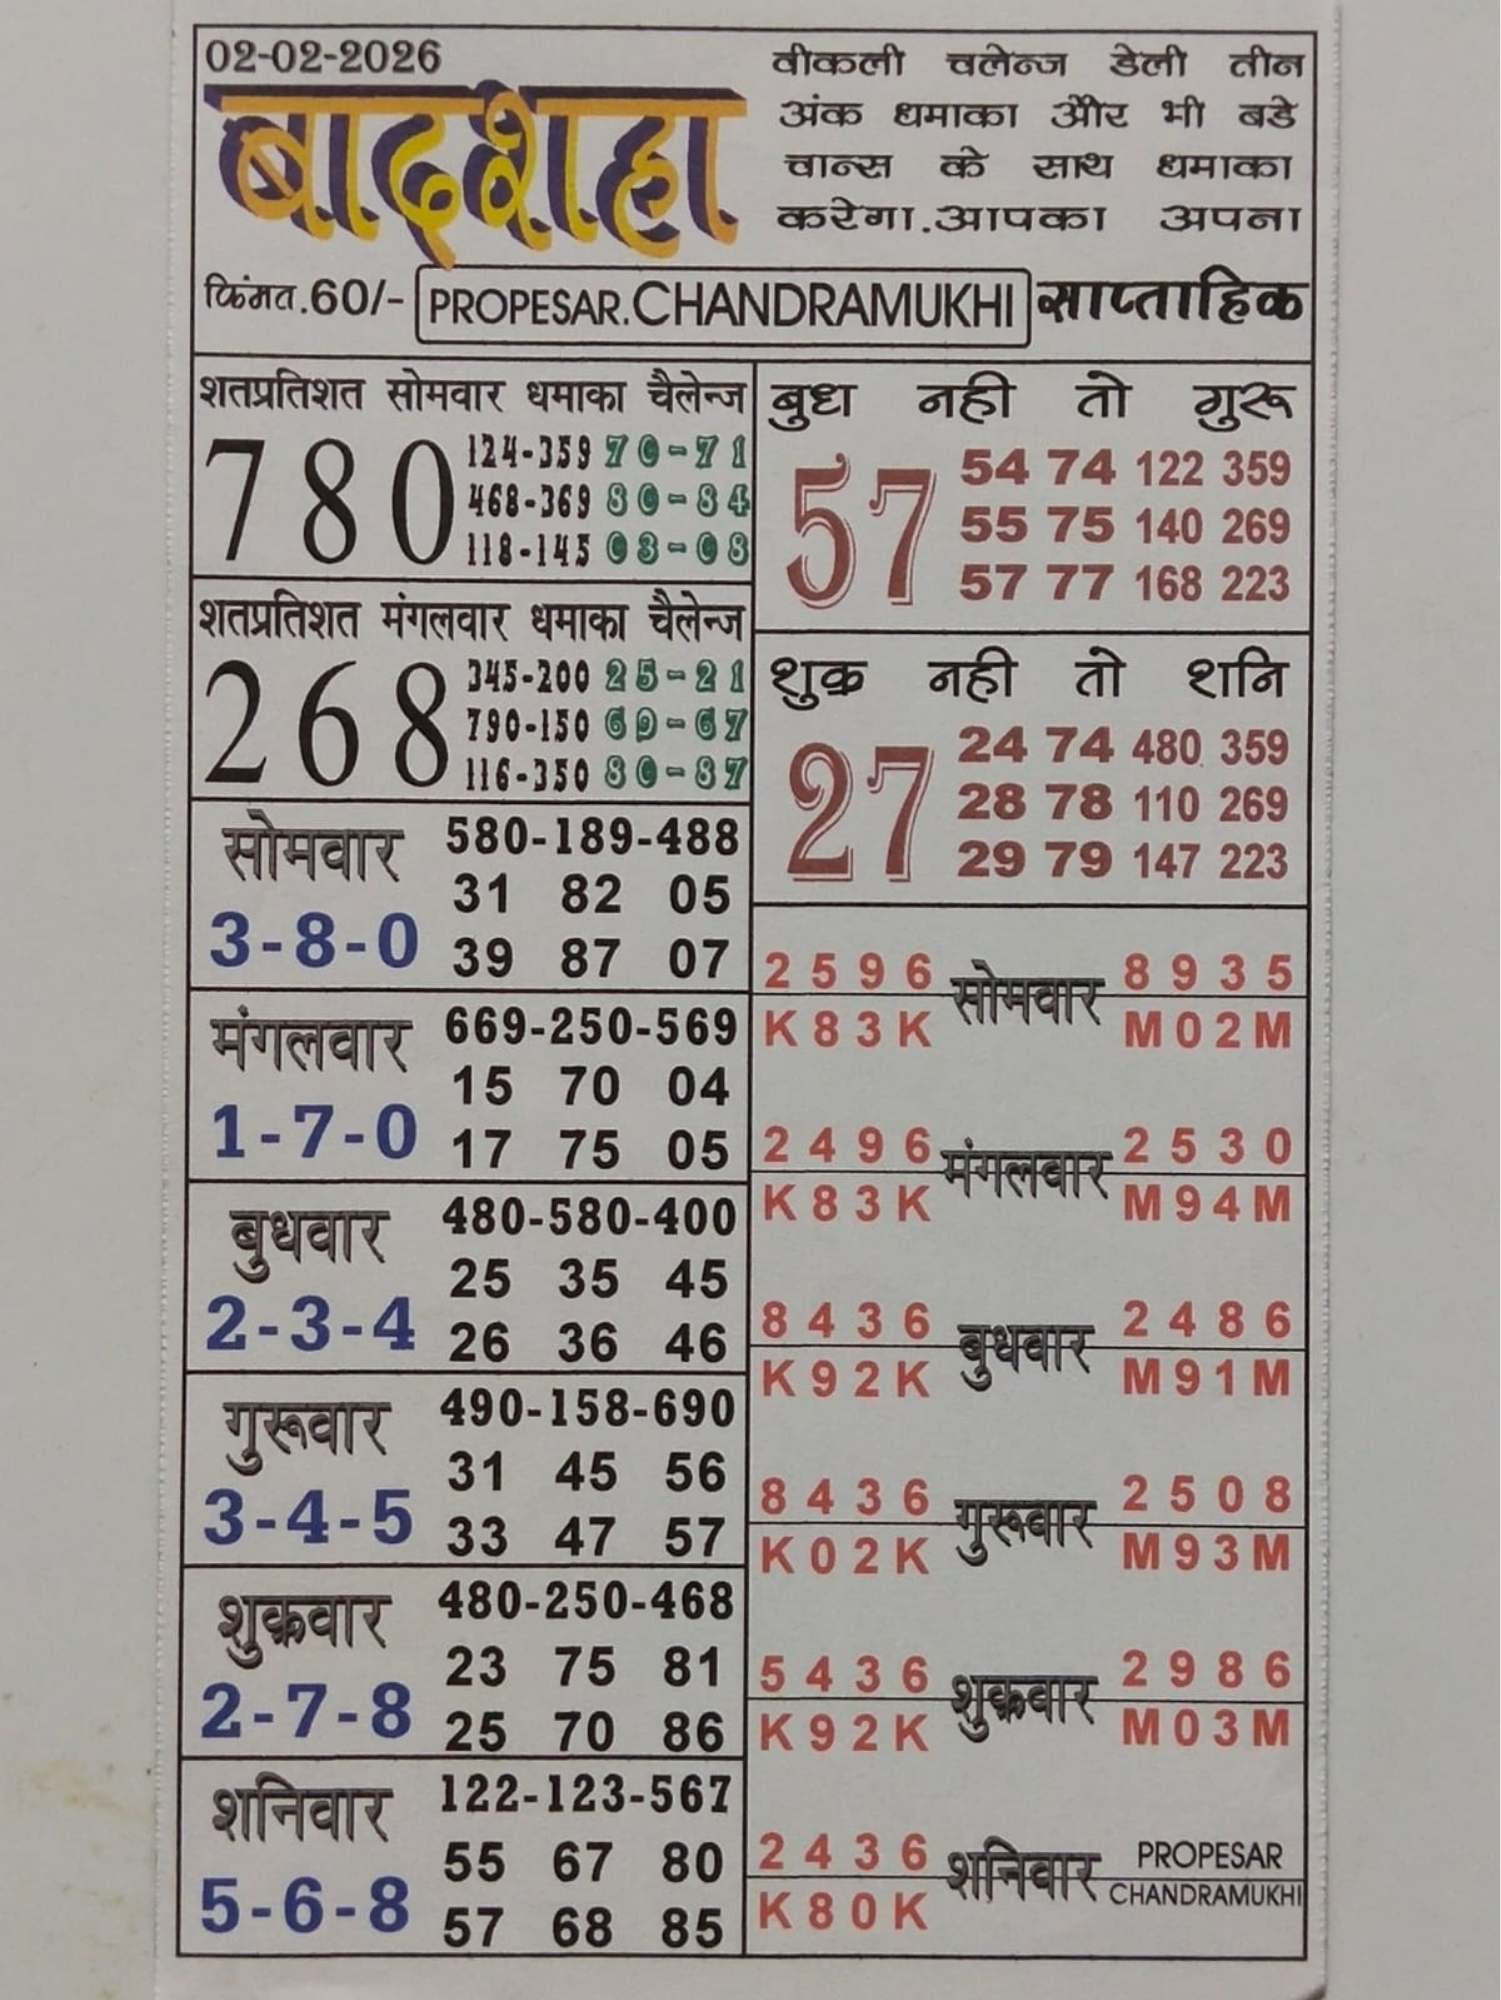 02-02-2026
बादशहा
वीकली चलेन्ज डेली तीन
अंक धमाका और भी बडे
चान्स के साथ धमाका
करेगा.आपका अपना
किंमत.60/- PROPESAR.CHANDRAMUKHI साप्ताहिक
शतप्रतिशत सोमवार धमाका चैलेन्ज
780
124-359 70-71
468-369 80-84
118-145 03-08
शतप्रतिशत मंगलवार धमाका चैलेन्ज
268
345-200 25-21
790-150 60-67
116-350 80-87
बुध नही तो गुरू
57
54 74 122 359
55 75 140 269
57 77 168 223
शुक्र नही तो शनि
27
24 74 480 359
28 78 110 269
29 79 147 223
सोमवार 580-189-488
31 82 05
3-8-0
39 87 07
मंगलवार 669-250-569
15 70 04
1-7-0
17 75 05
बुधवार 480-580-400
25 35 45
2-3-4
26 36 46
गुरूवार 490-158-690
31 45 56
3-4-5
33 47 57
शुक्रवार 480-250-468
23 75 81
2-7-8
25 70 86
शनिवार 122-123-567
55 67 80
5-6-8
57 68 85
2596 सोमवार 8935
K83K M02M
2496 मंगलवार 2530
K83K M94M
8436 बुधवार 2486
K92K M91M
8436 गुरूवार 2508
K02K M93M
5436 शुक्रवार 2986
K92K M03M
2436 शनिवार PROPESAR
K80K CHANDRAMUKHI